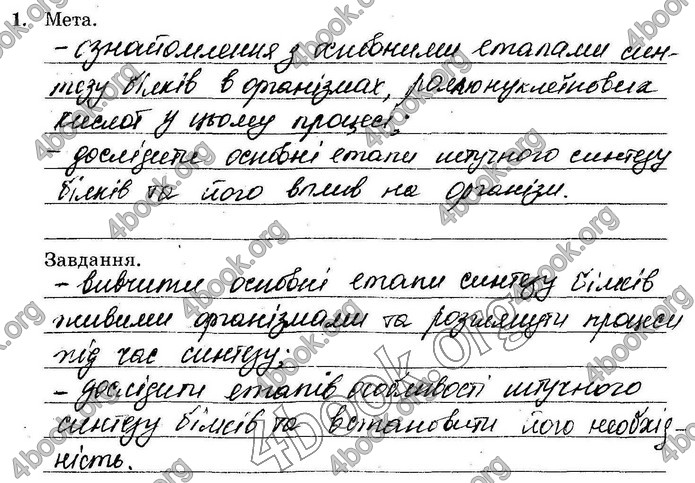 1. Мета.
- ознайомлення з основними етапами син-
тезу білків в організмах, роллю нуклеїнових
кислот у цьому процесі;
- дослідити основні етапи штучного синтезу
білків та його вплив на організм.
Завдання.
- вивчити основні етапи синтезу білків
живими організмами та розглянути процеси
під час синтезу;
- дослідити етапів особливості штучного
синтезу білків та встановити його необхід-
ність.
4book.org